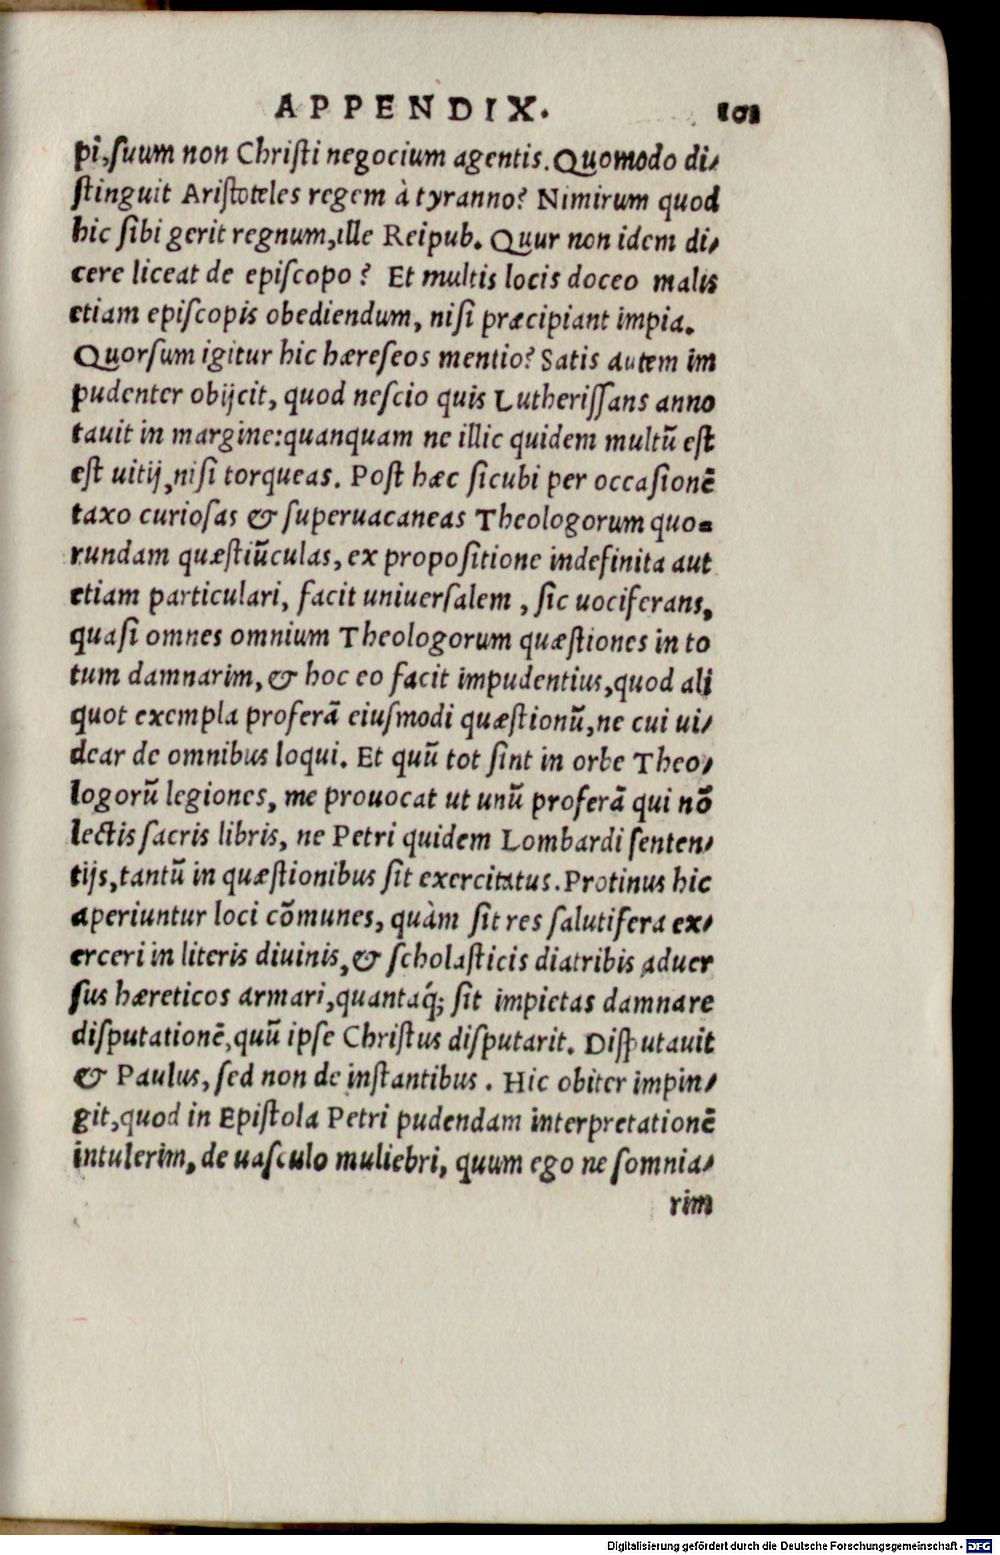 APPENDIX. 101
pi, suum non Christi negocium agentis. Quomodo di⸗
stinguit Aristoteles regem à tyranno? Nimirum quod
hic sibi gerit regnum, ille Reipub. Quur non idem di⸗
cere liceat de episcopo? Et multis locis doceo malis
etiam episcopis obediendum, nisi præcipiant impia.
Quorsum igitur hic hæreseos mentio? Satis autem im
pudenter obijcit, quod nescio quis Lutherissans anno
tauit in margine: quanquam ne illic quidem multũ est
est uitij, nisi torqueas. Post hæc sicubi per occasionẽ
taxo curiosas & superuacaneas Theologorum quo⸗
rundam quæstiũculas, ex propositione indefinita aut
etiam particulari, facit uniuersalem, sic uociferans,
quasi omnes omnium Theologorum quæstiones in to
tum damnarim, & hoc eo facit impudentius, quod ali
quot exempla proferã eiusmodi quæstionũ, ne cui ui⸗
dear de omnibus loqui. Et quũ tot sint in orbe Theo⸗
logorũ legiones, me prouocat ut unũ proferã qui nõ
lectis sacris libris, ne Petri quidem Lombardi senten⸗
tijs, tantũ in quæstionibus sit exercitatus. Protinus hic
aperiuntur loci cõmunes, quàm sit res salutifera ex⸗
erceri in literis diuinis, & scholasticis diatribis aduer
sus hæreticos armari, quantaq́; sit impietas damnare
disputationẽ, quũ ipse Christus disputarit. Disputauit
& Paulus, sed non de instantibus. Hic obiter impin⸗
git, quod in Epistola Petri pudendam interpretationẽ
intulerim, de uasculo muliebri, quum ego ne somnia⸗
rim
Digitalisierung gefördert durch die Deutsche Forschungsgemeinschaft - DFG